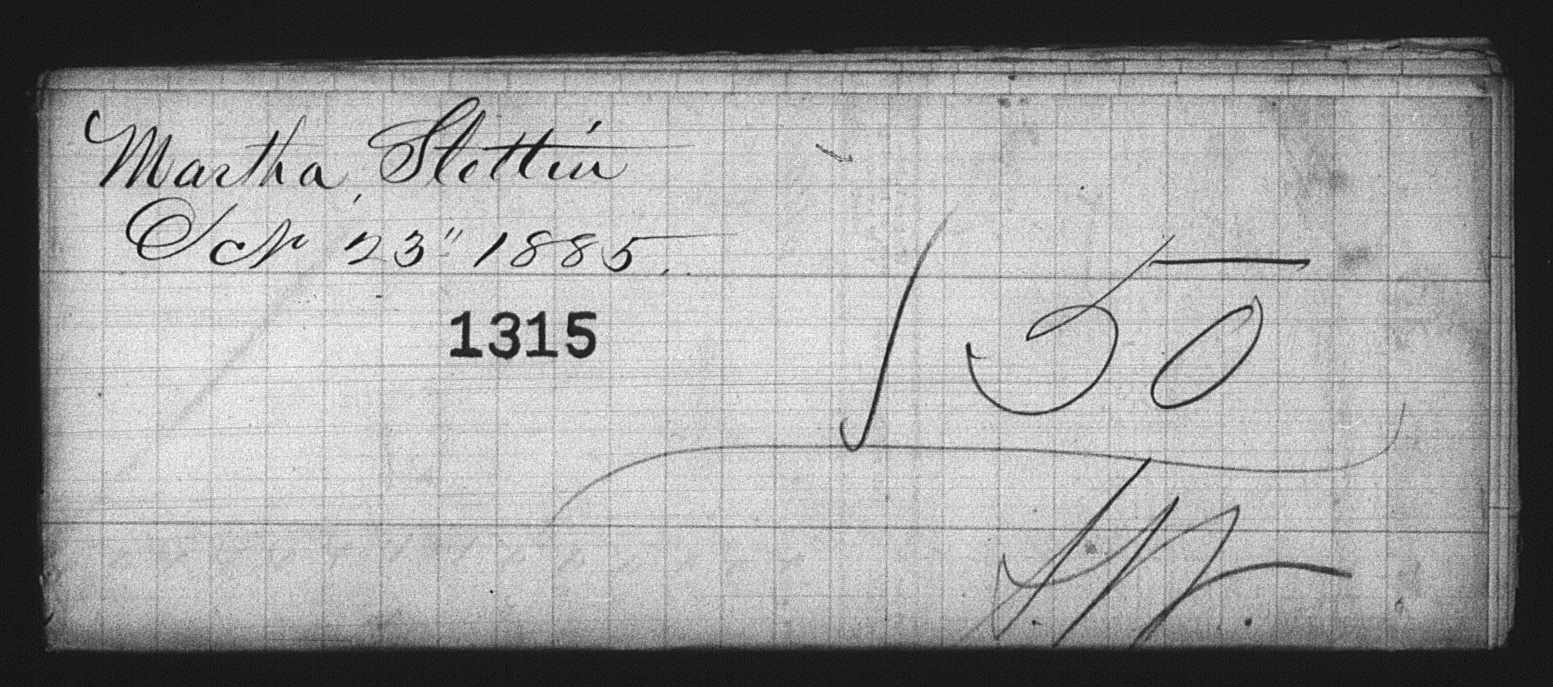 Martha Stettin
Oct 23" 1885.
1315
150